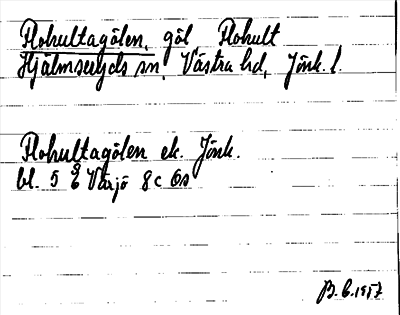 Flohultagölen, göl Flohult
Hjälmseryds sn, Västra hd, Jönk. l.
Flohultagölen ek. Jönk.
bl. 5 E Värjö 8c Os
B.C. 1957